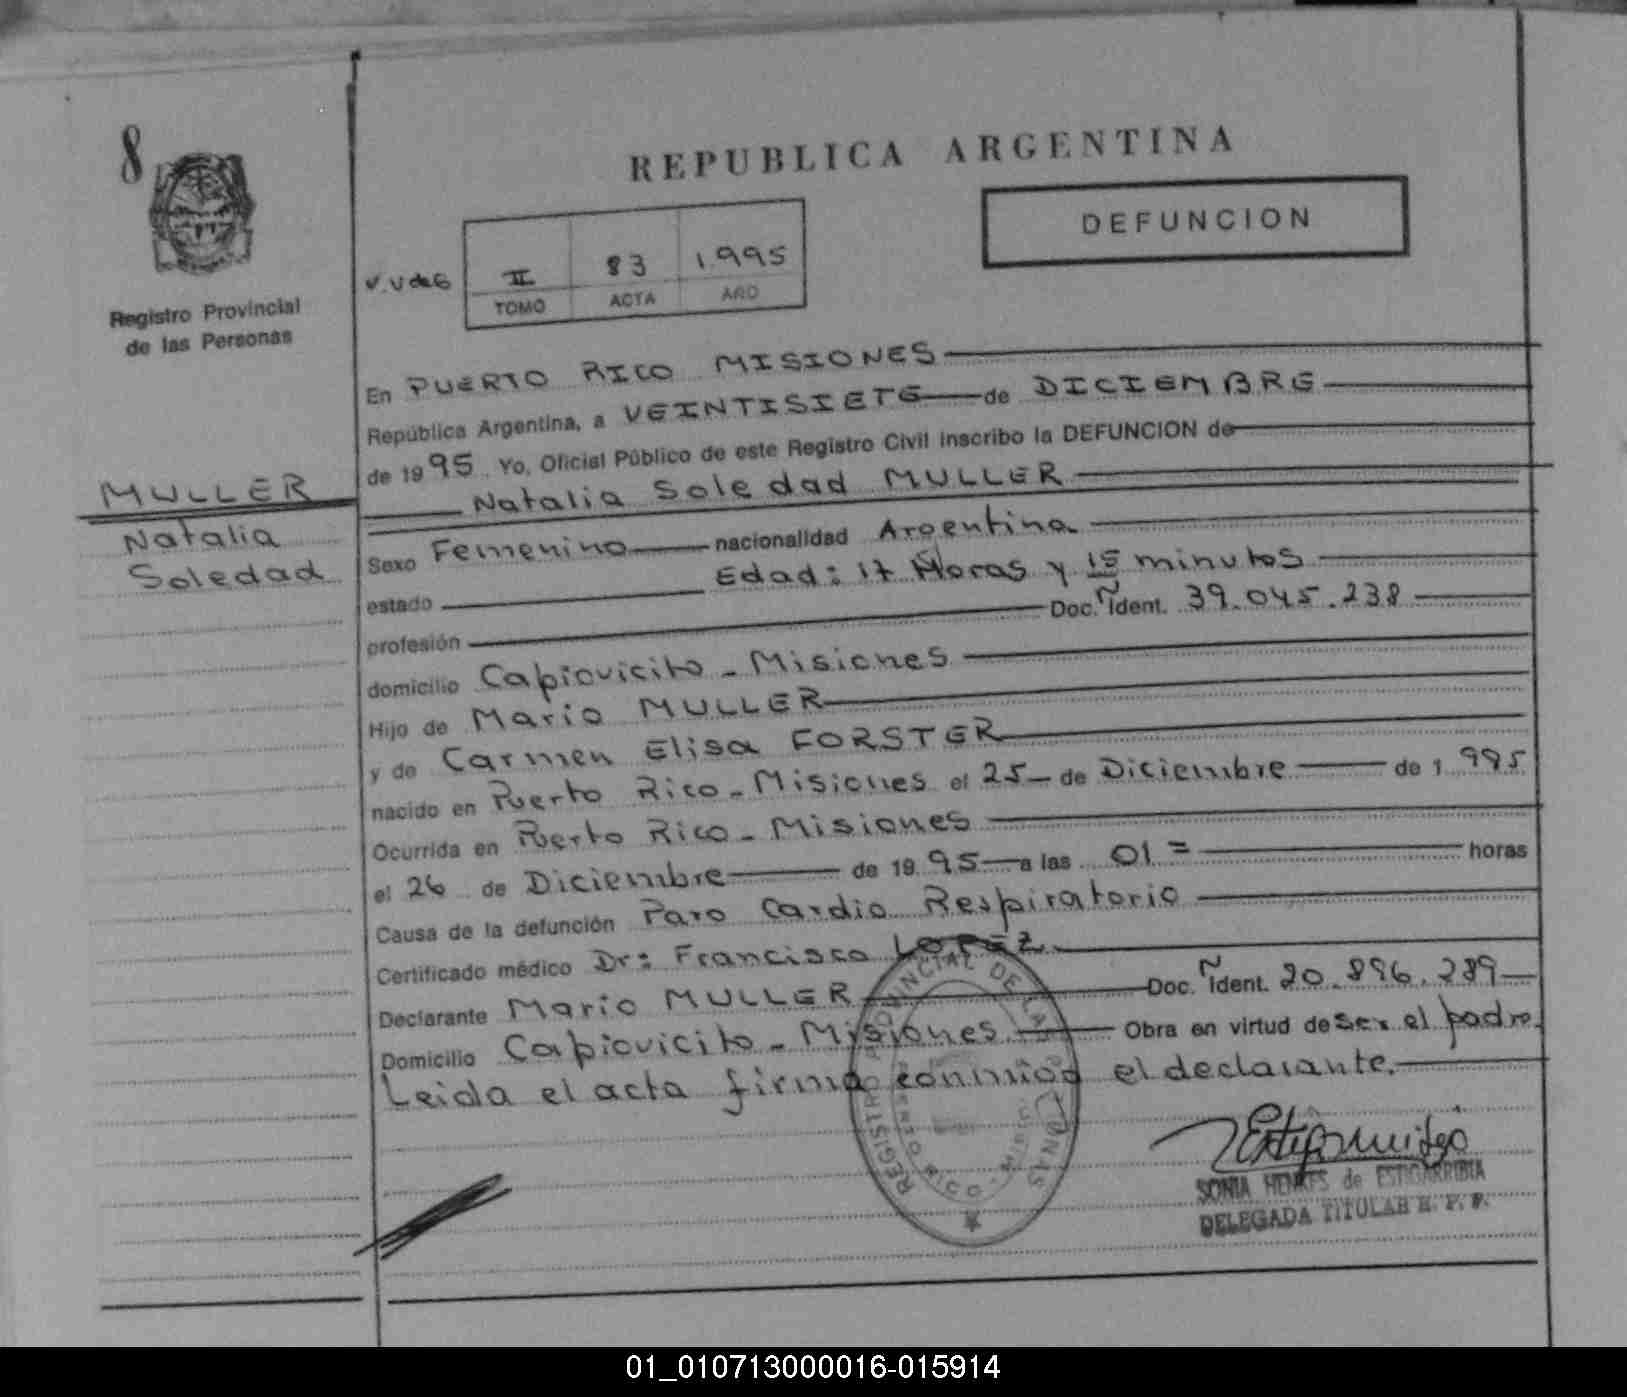 8
REPUBLICA ARGENTINA
DEFUNCION
II 83 1.995
TOMO ACTA AÑO
Registro Provincial
de las Personas
En PUERTO RICO MISIONES
República Argentina, a VEINTISIETE de DICIEMBRE
de 1995 Yo, Oficial Público de este Registro Civil inscribo la DEFUNCION de
Natalia Soledad MULLER
MULLER
Natalia
Soledad
Sexo Femenino nacionalidad Argentina
estado Edad: 17 Horas y 15 minutos
profesión Doc. Ident. 39.045.238
domicilio Capiovicito - Misiones
Hijo de Mario MULLER
y de Carmen Elisa FORSTER
nacido en Puerto Rico - Misiones el 25 de Diciembre de 1.995
Ocurrida en Puerto Rico - Misiones
el 26 de Diciembre de 1995 a las 01 = horas
Causa de la defunción Paro Cardio Respiratorio
Certificado médico Dr: Francisco LOPEZ
Declarante Mario MULLER Doc. Ident. 20.896.289
Domicilio Capiovicito - Misiones Obra en virtud de ser el padre.
Leida el acta firma conmigo el declarante.
REGISTRO PROVINCIAL DE LAS PERSONAS
SONIA HENKES de ESTIGARRIBIA
DELEGADA TITULAR R. P. P.
01_010713000016-015914